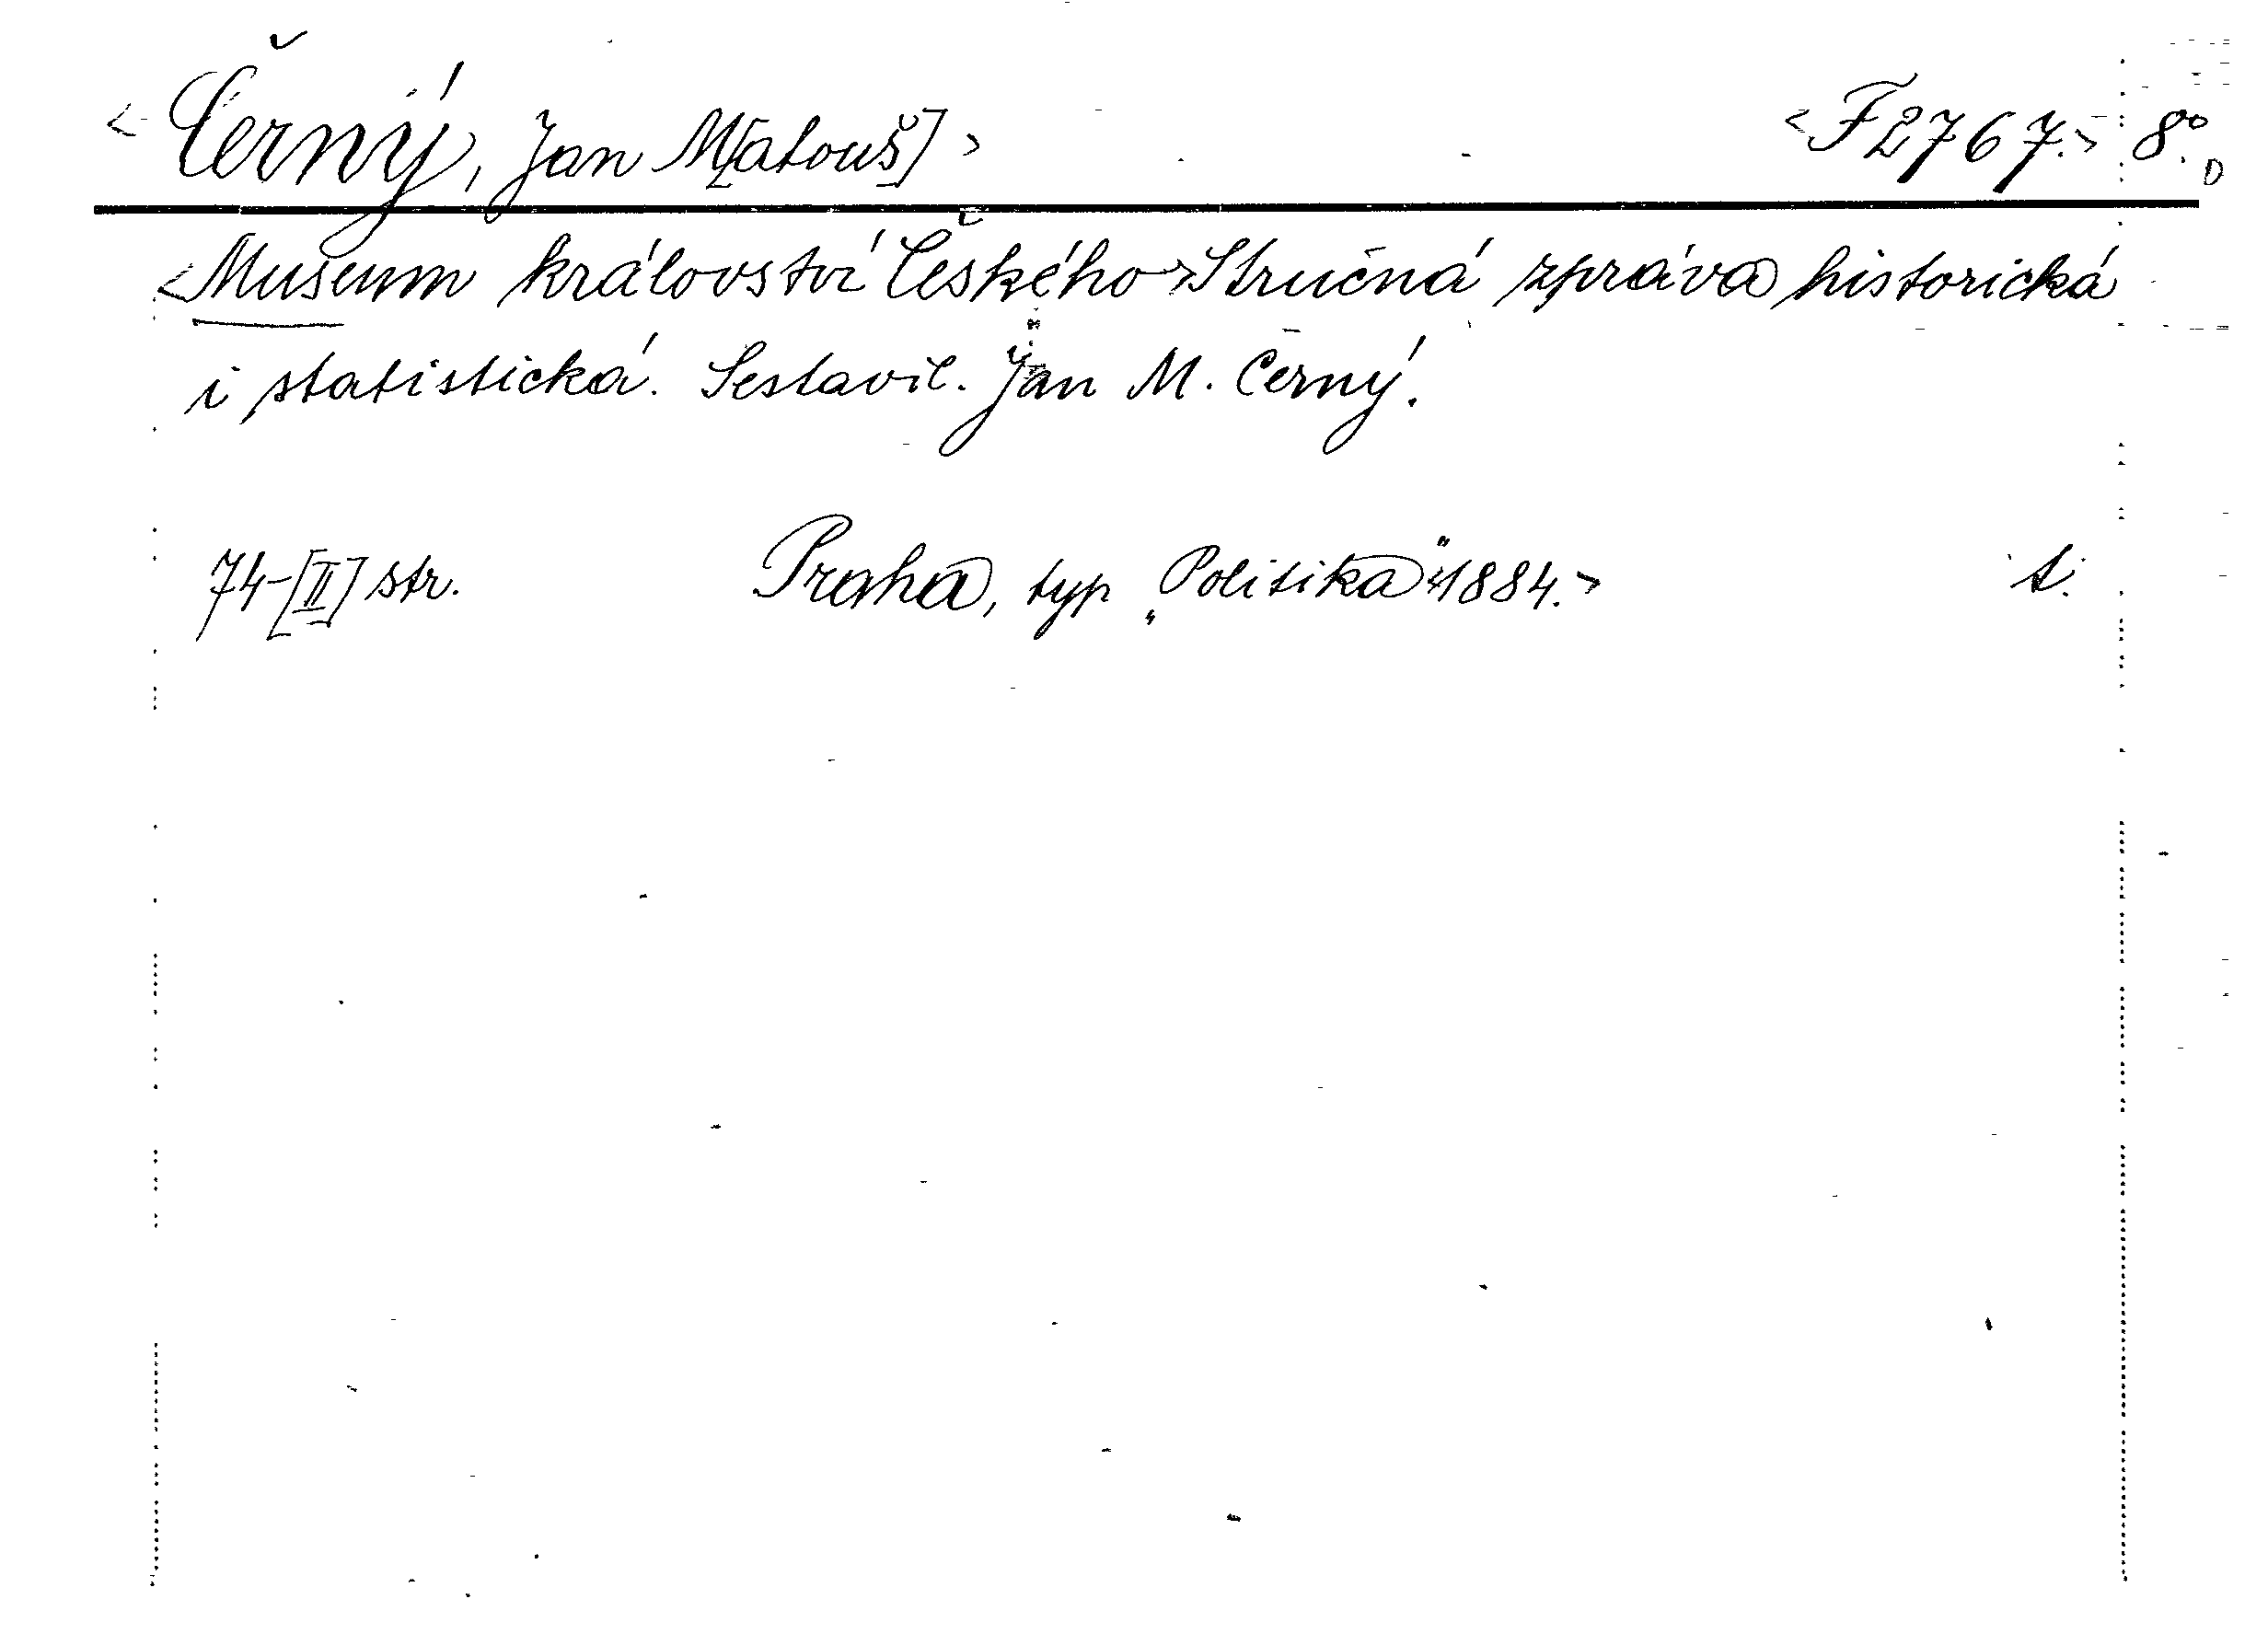 <Černý, Jan M[atouš]> <F 2767.> 8°. D
<Museum království Českého> Stručná zpráva historická
i statistická. Sestavil. Jan M. Černý.
74-[II] str. Praha, typ „Politika" 1884.> t.